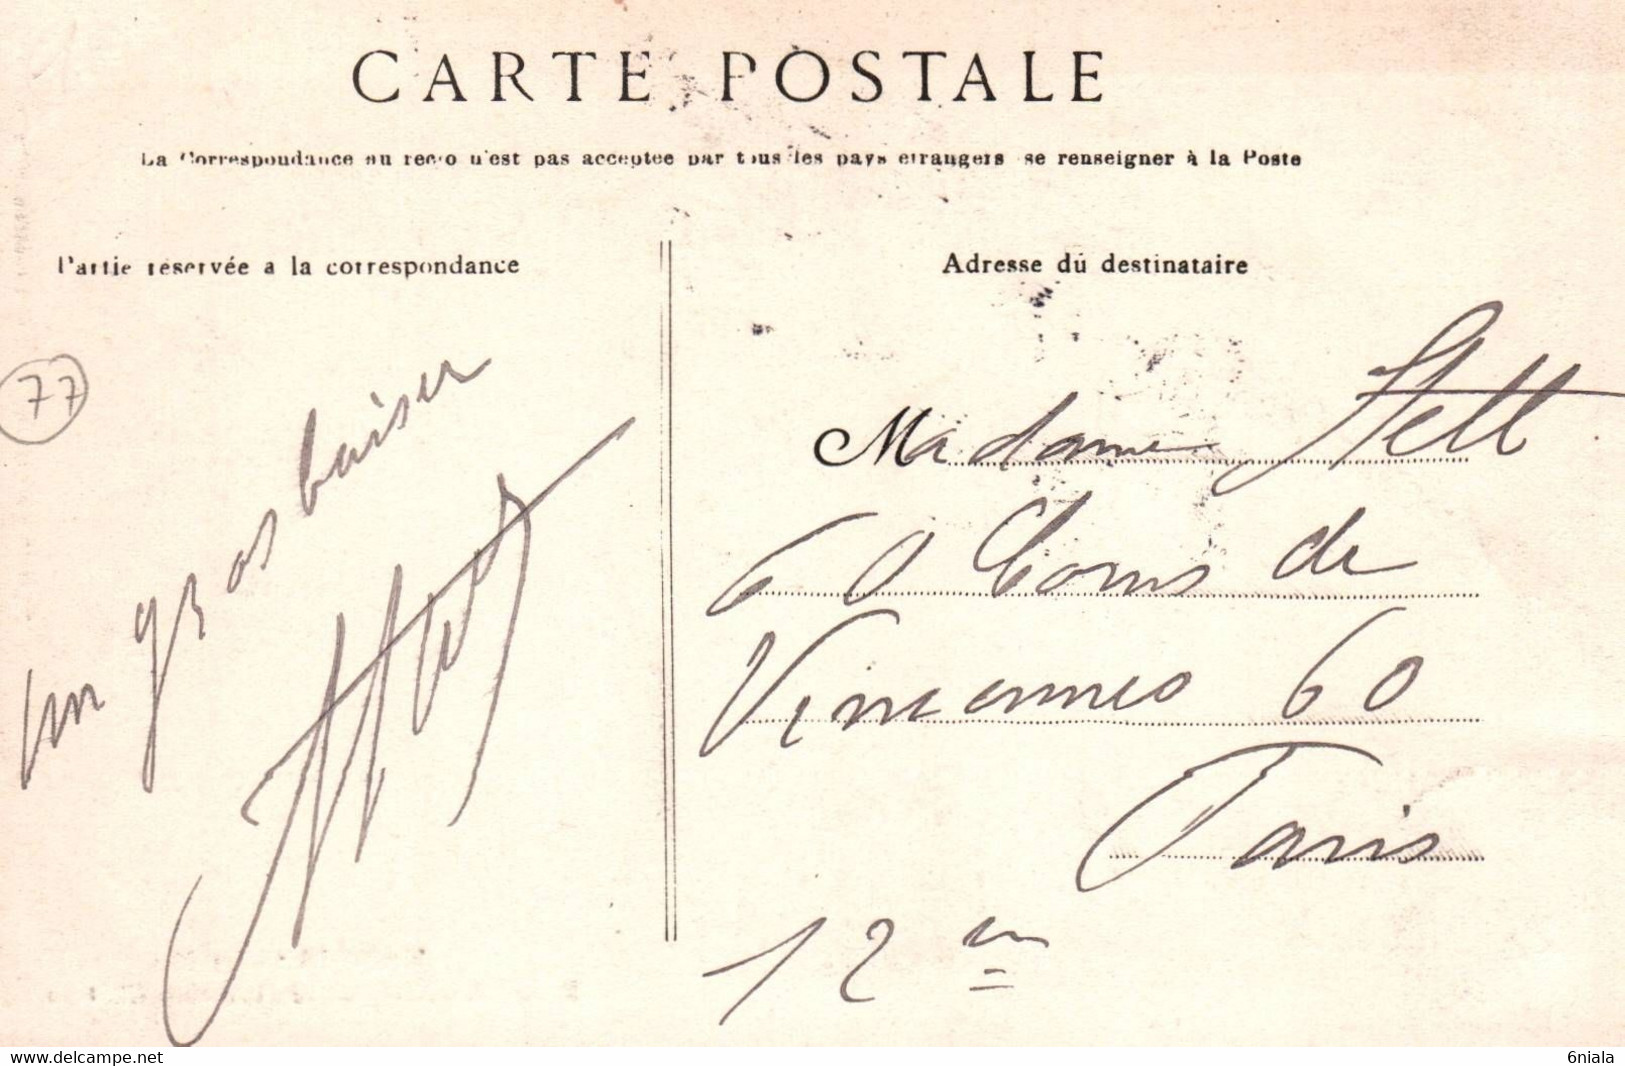 CARTE POSTALE
La Correspondance au recto n'est pas acceptee par tous les pays etrangers se renseigner à la Poste
Partie réservée a la correspondance
Adresse du destinataire
77
un gros baiser
Madame Stell
60 Cours de
Vincennes 60
Paris
12 em
www.delcampe.net
6niala